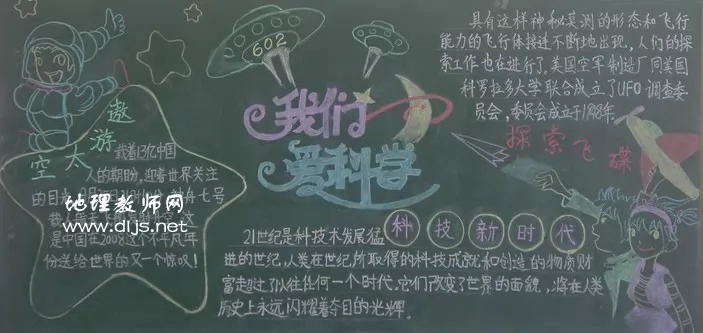 602
我们
爱科学
遨游太空
载着13亿中国
人的期盼,迎着世界关注
的目光
神舟七号
载人
是中国在2008这个不平凡年
份送给世界的又一个惊叹!
地理教师网
www.dljs.net
具有这样神秘莫测的形态和飞行
能力的飞行体接连不断地出现,人们的探
索工作也在进行了,美国空军制造厂同美国
科罗拉多大学联合成立了UFO调查委
员会,委员会成立于1948年.
探索飞碟
科技新时代
21世纪是科技术发展猛
进的世纪,人类在世纪所取得的科技成就和创造的物质财
富走过了以往任何一个时代.它们改变了世界的面貌,将在人类
历史上永远闪耀着夺目的光辉.